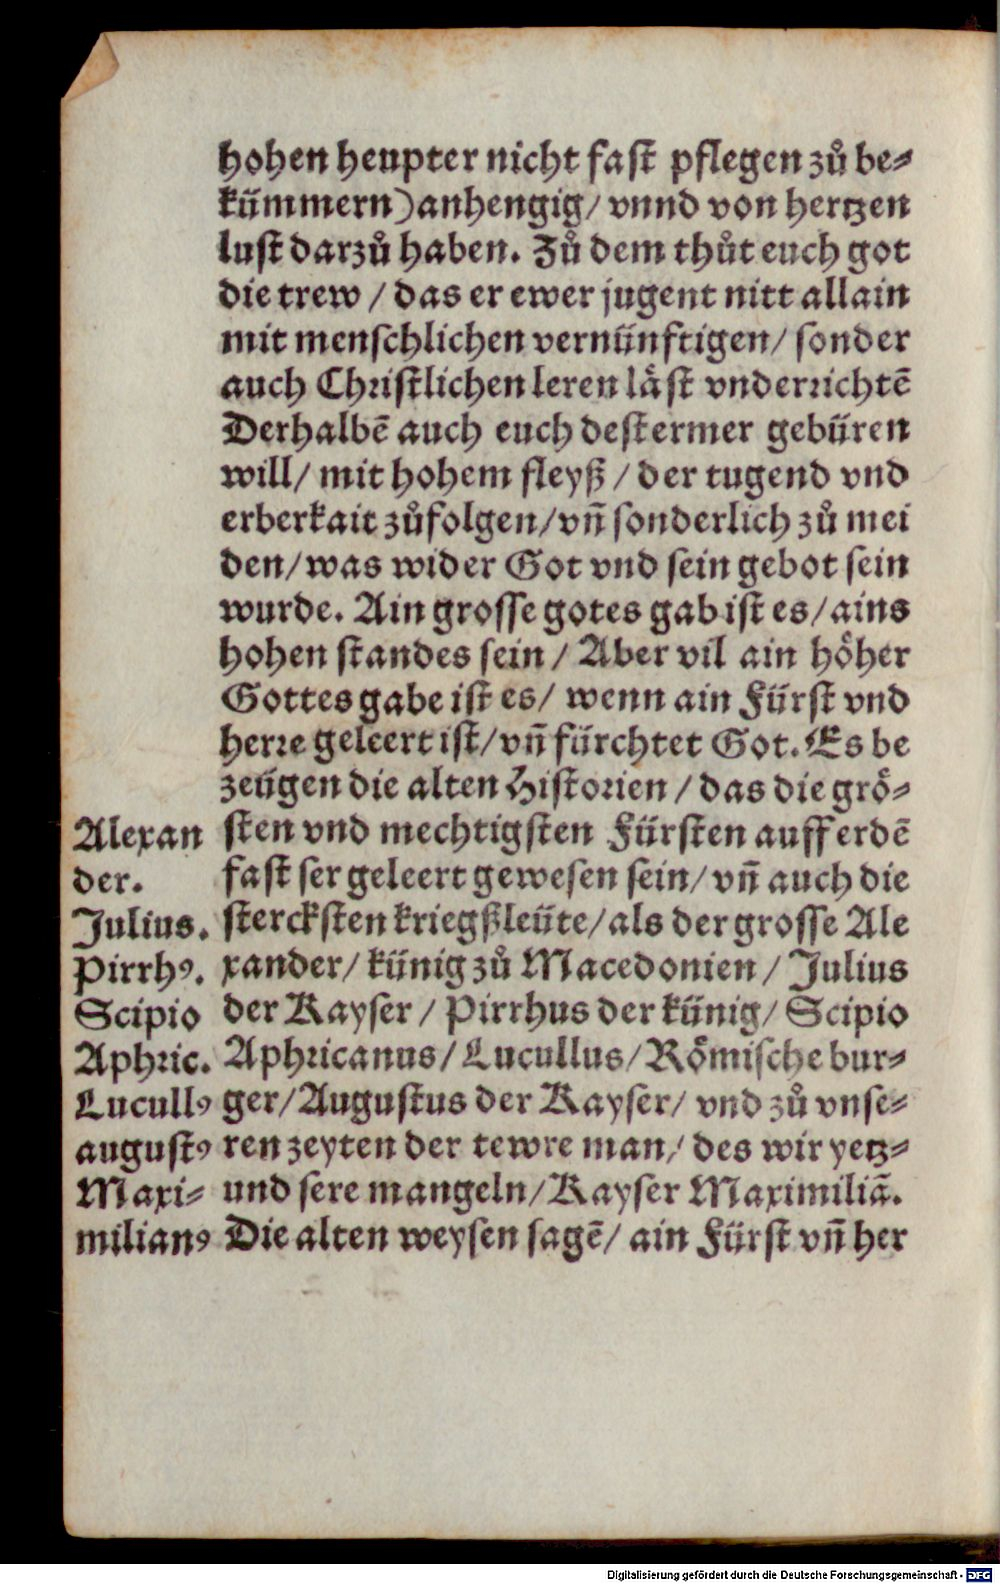 hohen heupter nicht fast pflegen zuͦ be⸗
kümmern)anhengig/ vnnd von hertzen
lust darzuͦ haben. Zuͦ dem thuͦt euch got
die trew / das er ewer jugent nitt allain
mit menschlichen vernünftigen/ sonder
auch Christlichen leren läst vnderrichtē
Derhalbē auch euch destermer gebüren
will/ mit hohem fleyß / der tugend vnd
erberkait zuͦfolgen/vñ sonderlich zuͦ mei
den/was wider Got vnd sein gebot sein
wurde. Ain grosse gotes gab ist es/ains
hohen standes sein / Aber vil ain höher
Gottes gabe ist es/ wenn ain Fürst vnd
herre geleert ist/vñ fürchtet Got. Es be
zeügen die alten Historien / das die grö⸗
sten vnd mechtigsten Fürsten auff erdē
fast ser geleert gewesen sein/vñ auch die
stercksten kriegßleüte/als der grosse Ale
xander/ künig zuͦ Macedonien / Julius
der Kayser / Pirrhus der künig/ Scipio
Aphricanus/ Lucullus/ Römische bur⸗
ger/Augustus der Kayser/ vnd zuͦ vnse⸗
ren zeyten der tewre man/ des wir yetz⸗
und sere mangeln/Kayser Maximiliā.
Die alten weysen sagē/ ain Fürst vñ her
Alexan
der.
Julius.
Pirrhꝰ.
Scipio
Aphric.
Lucullꝰ
augustꝰ
Maxi⸗
milianꝰ
Digitalisierung gefördert durch die Deutsche Forschungsgemeinschaft - DFG